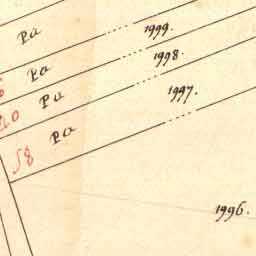 Pa 1999.
Pa 1998.
Pa 1997.
Pa
1996.